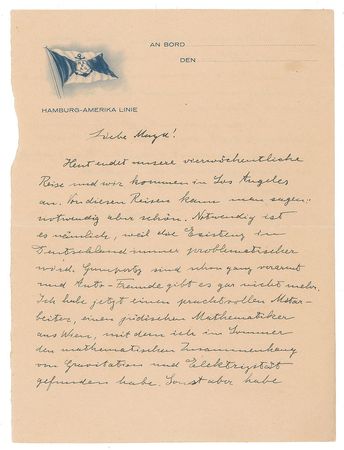 AN BORD
DEN
HAMBURG-AMERIKA LINIE
Liebe Maja!
Heut endet unsere vierwöchentliche
Reise und wir kommen in Los Angeles
an. Von diesen Reisen kann man sagen:
notwendig aber schön. Notwendig ist
es nämlich, weil die Existenz in
Deutschland immer problematischer
wird. sind schon ganz verarmt
und Auto-Freunde gibt es gar nicht mehr.
Ich habe jetzt einen prachtvollen Mitar-
beiter, einen jüdischen Mathematiker
aus Wien, mit dem ich im Sommer
den mathematischen Zusammenhang
von Gravitation und Elektrizität
gefunden habe. Sonst aber habe